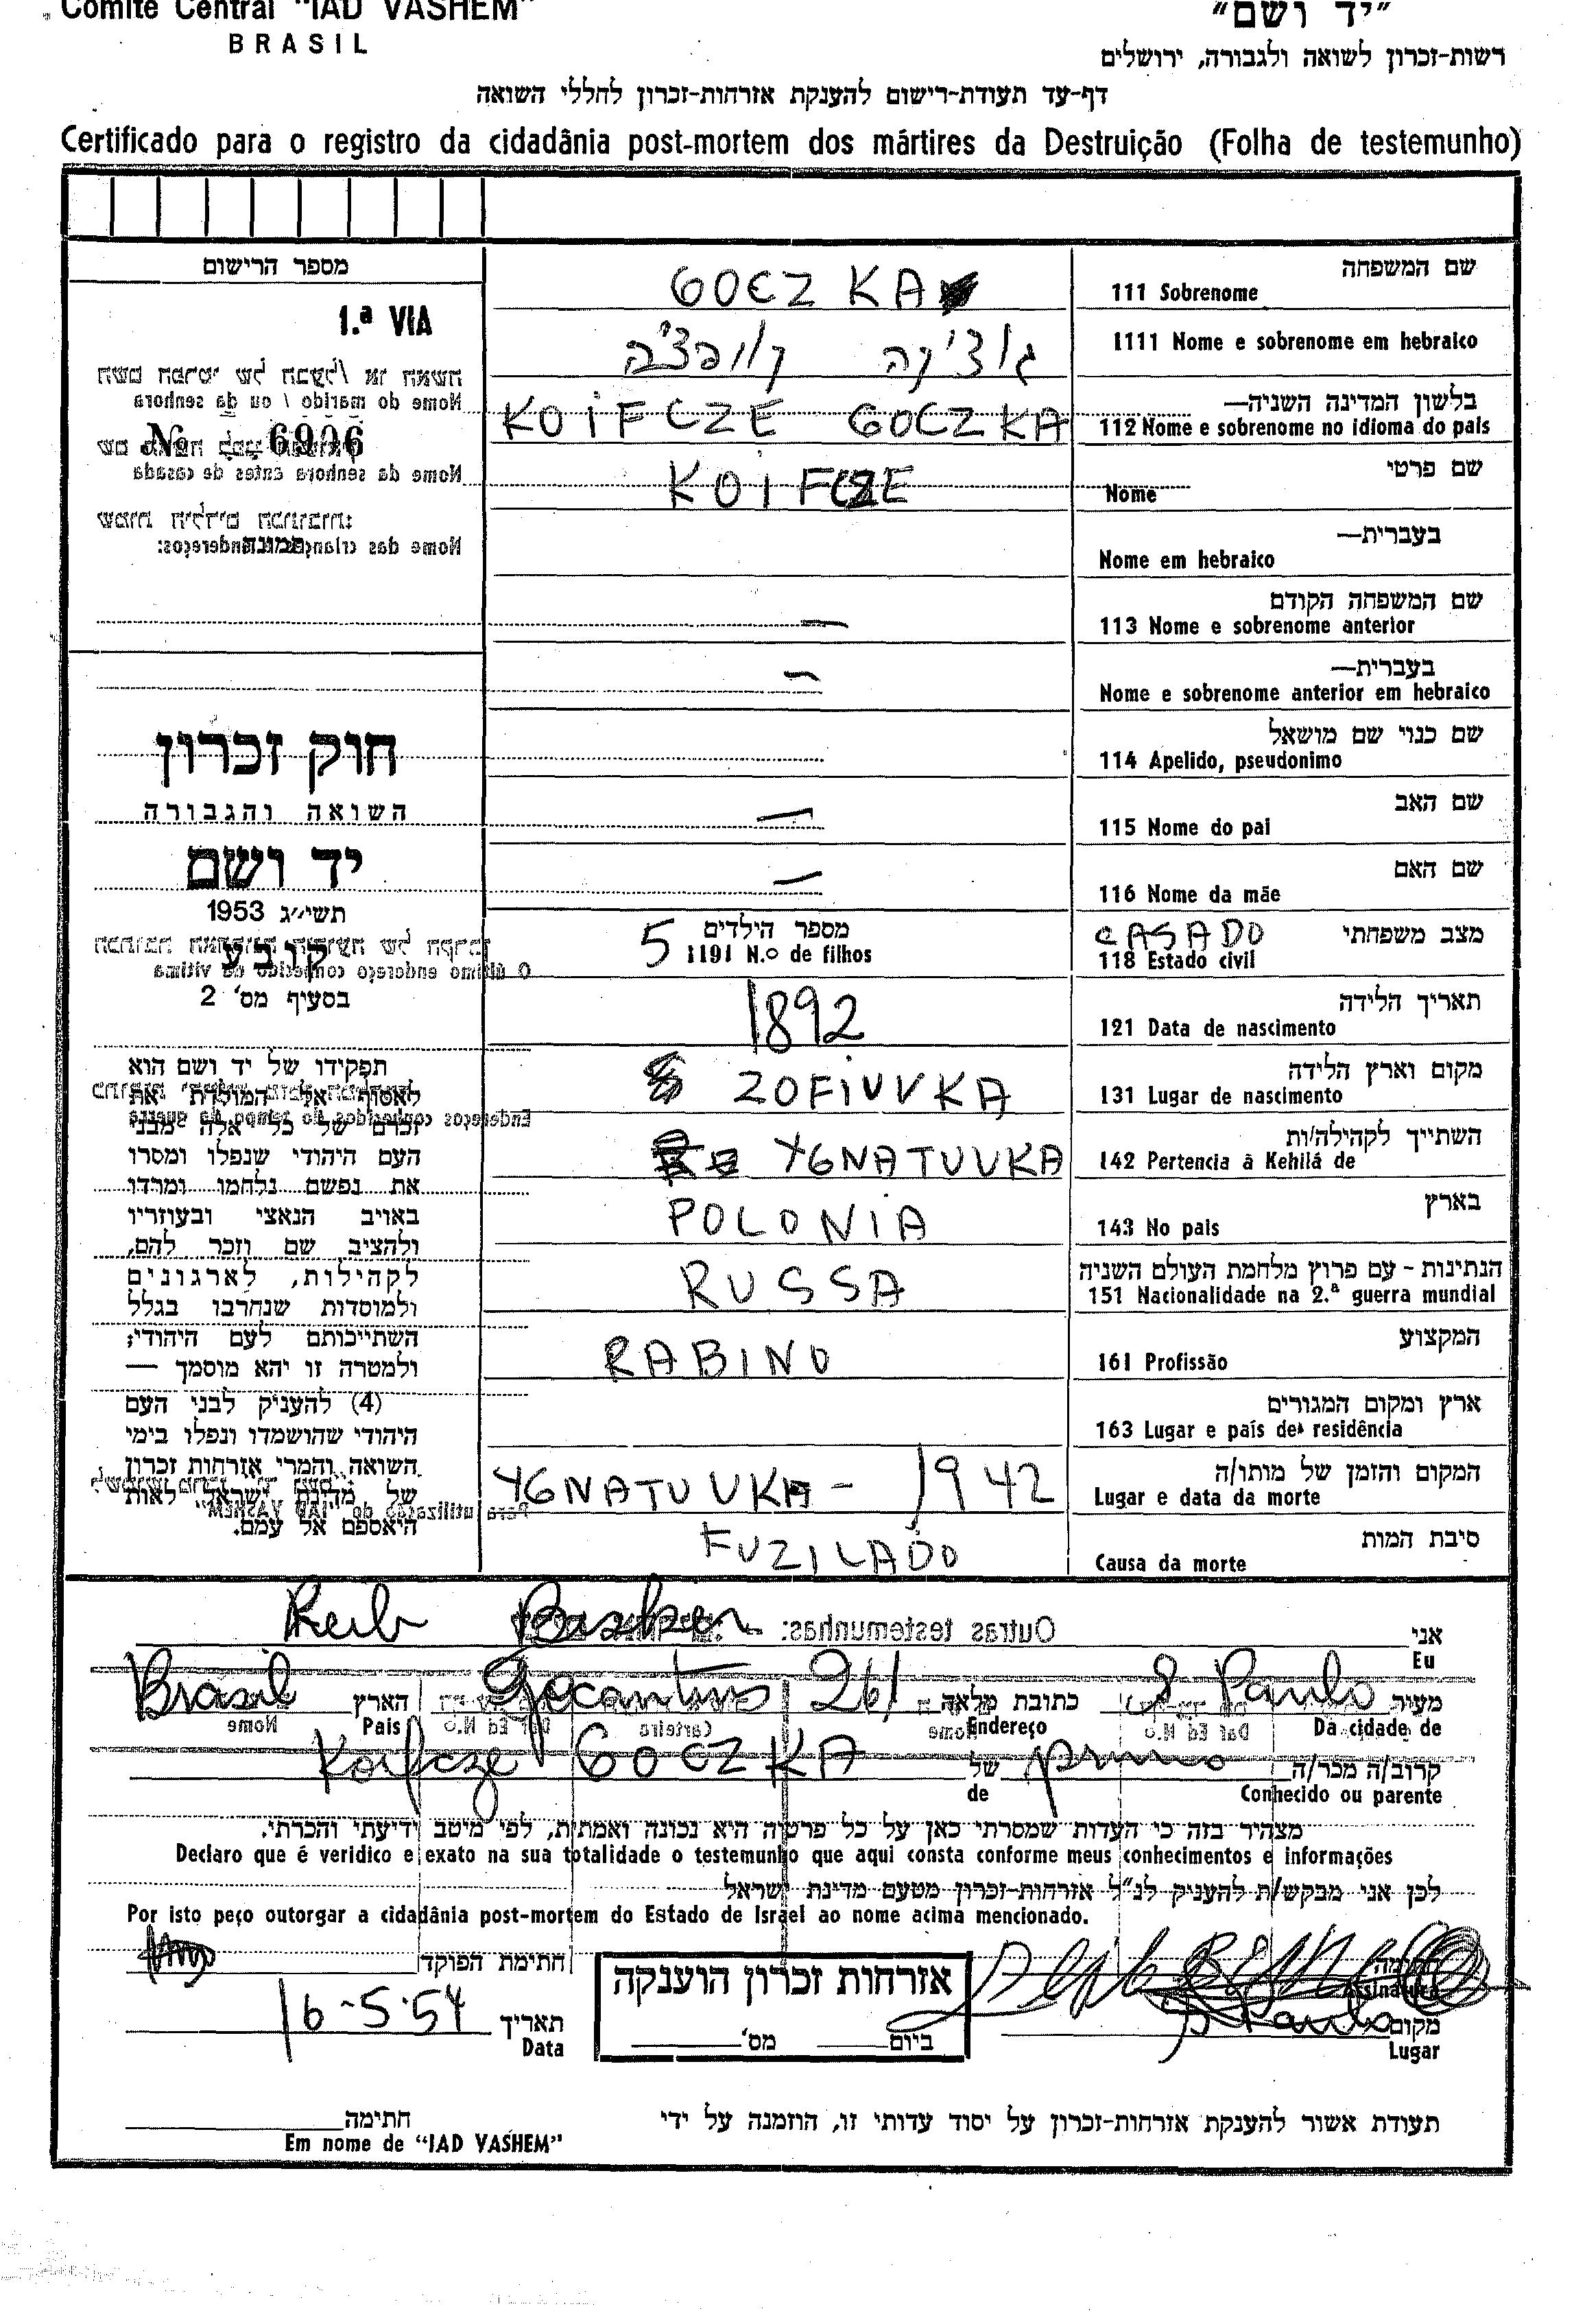 Comité Central "IAD VASHEM"
BRASIL
"יד ושם"
רשות-זכרון לשואה ולגבורה, ירושלים
דף-עד תעודת-רישום להענקת אזרחות-זכרון לחללי השואה
Certificado para o registro da cidadânia post-mortem dos mártires da Destruição (Folha de testemunho)
שם המשפחה
111 Sobrenome
GOCZKA
1111 Nome e sobrenome em hebraico
גוצ'קה
בלשון המדינה השניה—
112 Nome e sobrenome no idioma do país
KOIFCZE GOCZKA
שם פרטי
Nome
KOIFCZE
בעברית—
Nome em hebraico
שם המשפחה הקודם
113 Nome e sobrenome anterior
—
בעברית—
Nome e sobrenome anterior em hebraico
—
שם כנוי שם מושאל
114 Apelido, pseudonimo
שם האב
115 Nome do pai
—
שם האם
116 Nome da mãe
—
מצב משפחתי
118 Estado civil
CASADO
מספר הילדים
1191 N.º de filhos
5
תאריך הלידה
121 Data de nascimento
1892
מקום וארץ הלידה
131 Lugar de nascimento
ZOFIUVKA
השתייך לקהילה/ות
142 Pertencia à Kehilá de
YGNATUVKA
בארץ
143 No pais
POLONIA
הנתינות - עם פרוץ מלחמת העולם השניה
151 Nacionalidade na 2.ª guerra mundial
RUSSA
המקצוע
161 Profissão
RABINO
ארץ ומקום המגורים
163 Lugar e país de residência
המקום והזמן של מותו/ה
Lugar e data da morte
YGNATUVKA - 1942
סיבת המות
Causa da morte
FUZILADO
מספר הרישום
1.ª VIA
שם הפרטי של הבעל/ או האשה
Nome do marido / ou da senhora
№ 6906
Nome da senhora antes de casada
Nome das crianças e endereços:
תמונה
חוק זכרון
השואה והגבורה
יד ושם
תשי"ג 1953
קובע
O último endereço conhecido da vitima
בסעיף מס' 2
תפקידו של יד ושם הוא
לאסוף אל המולדת את
Endereços conhecidos do tempo da guerra
זכרם של כל אלה מבני
העם היהודי שנפלו ומסרו
את נפשם נלחמו ומרדו
באויב הנאצי ובעוזריו
ולהציב שם וזכר להם,
לקהילות, לארגונים
ולמוסדות שנחרבו בגלל
השתייכותם לעם היהודי;
ולמטרה זו יהא מוסמך —
(4) להעניק לבני העם
היהודי שהושמדו ונפלו בימי
השואה והמרי אזרחות זכרון
של מדינת ישראל לאות
Para utilização do "IAD VASHEM"
היאספם אל עמם.
אני
Eu
Outras testemunhas:
מעיר
Da cidade de
S. Paulo
כתובת מלאה
Endereço
261
הארץ
Pais
Brasil
Nome
Carteira
Nome
קרוב/ה מכר/ה
Conhecido ou parente
primo
של
de
Koifcze GOCZKA
מצהיר בזה כי העדות שמסרתי כאן על כל פרטיה היא נכונה ואמתית, לפי מיטב ידיעתי והכרתי.
Declaro que é veridico e exato na sua totalidade o testemunho que aqui consta conforme meus conhecimentos e informações
לכן אני מבקש/ת להעניק לנ"ל אזרחות-זכרון מטעם מדינת ישראל
Por isto peço outorgar a cidadânia post-mortem do Estado de Israel ao nome acima mencionado.
Assinatura
אזרחות זכרון הוענקה
ביום מס'
חתימת הפוקד
מקום
Lugar
S. Paulo
תאריך
Data
16-5-54
תעודת אשור להענקת אזרחות-זכרון על יסוד עדותי זו, הוזמנה על ידי
חתימה
Em nome de "IAD VASHEM"